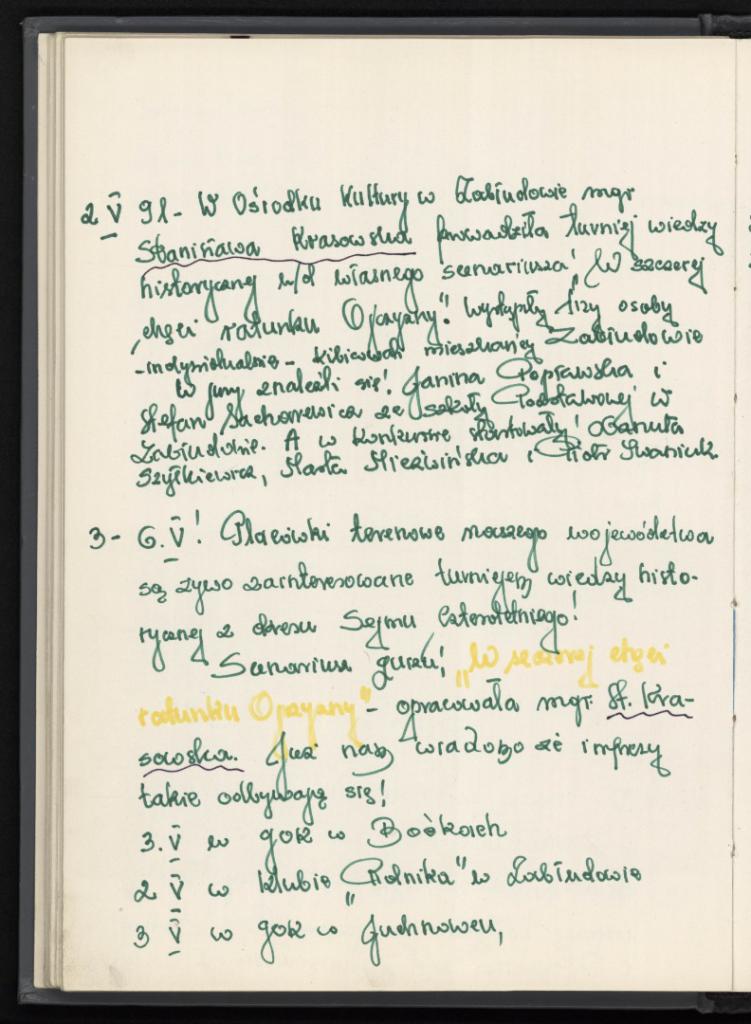 2 V 91 - W Ośrodku Kultury w Zabłudowie mgr
Stanisława Krasowska prowadziła turniej wiedzy
historycznej w/d własnego scenariusza! „W szczerej
chęci ratunku Ojczyzny". Wystąpiły trzy osoby
-indywidualnie- kibicowali mieszkańcy Zabłudowie
W jury znaleźli się! Janina Popławska i
Stefan Sacharewicz ze szkoły Podstawowej w
Zabłudowie. A w konkursie startowały! Danuta
Szyłkiewicz, Marta Nieżwińska i Piotr Iwaniuk.
3 - 6. V! Placówki terenowe naszego województwa
są żywo zainteresowane turniejem wiedzy histo-
rycznej z okresu Sejmu Czteroletniego!
Scenariusz quizu! „W szczerej chęci
ratunku Ojczyzny" - opracowała mgr St. Kra-
sowska. Już nam wiadomo że imprezy
takie odbywają się!
3. V w gok w Boćkach
2 V w klubie „Rolnika" w Zabłudowie
3 V w gok w Juchnowcu,